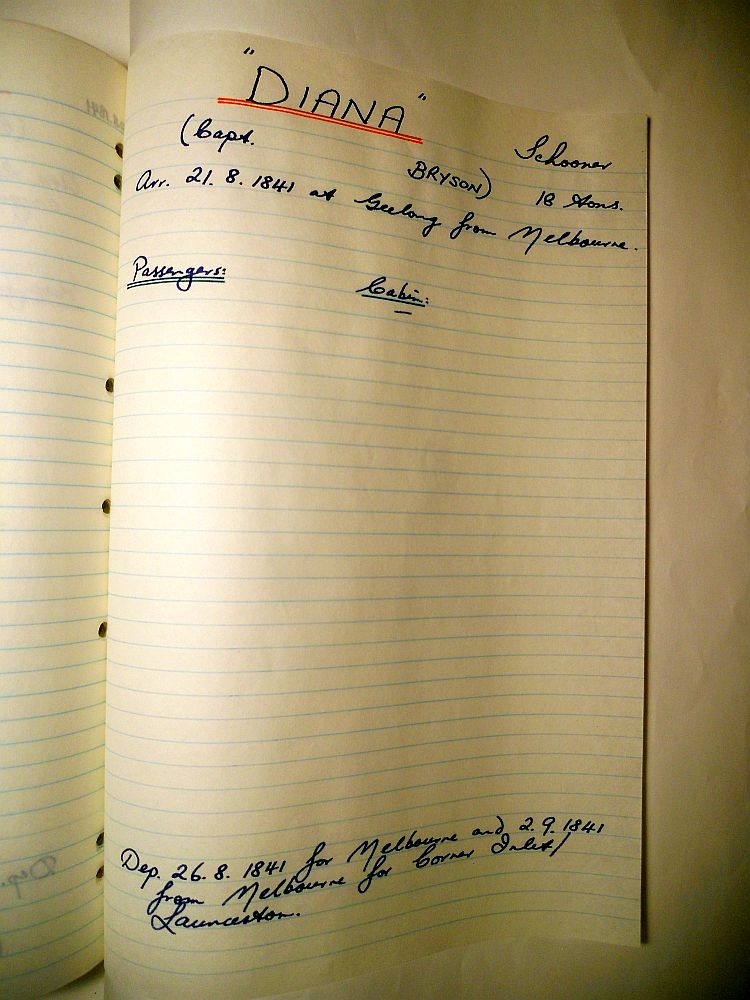 "DIANA"
(Capt. BRYSON) Schooner
18 tons.
Arr. 21.8.1841 at Geelong from Melbourne.
Passengers: Cabin:
–
Dep. 26.8.1841 for Melbourne and 2.9.1841
from Melbourne for Corner Inlet/
Launceston.